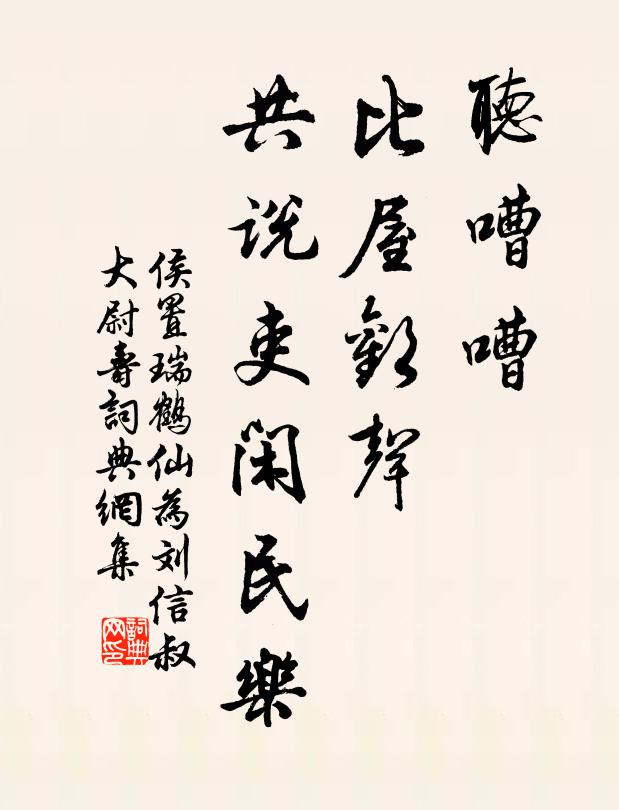 聽嘈嘈
比屋歡聲
共说吏闲民樂
侯置瑞鶴仙為刘信叔
大尉壽詞典網集
詞典网印